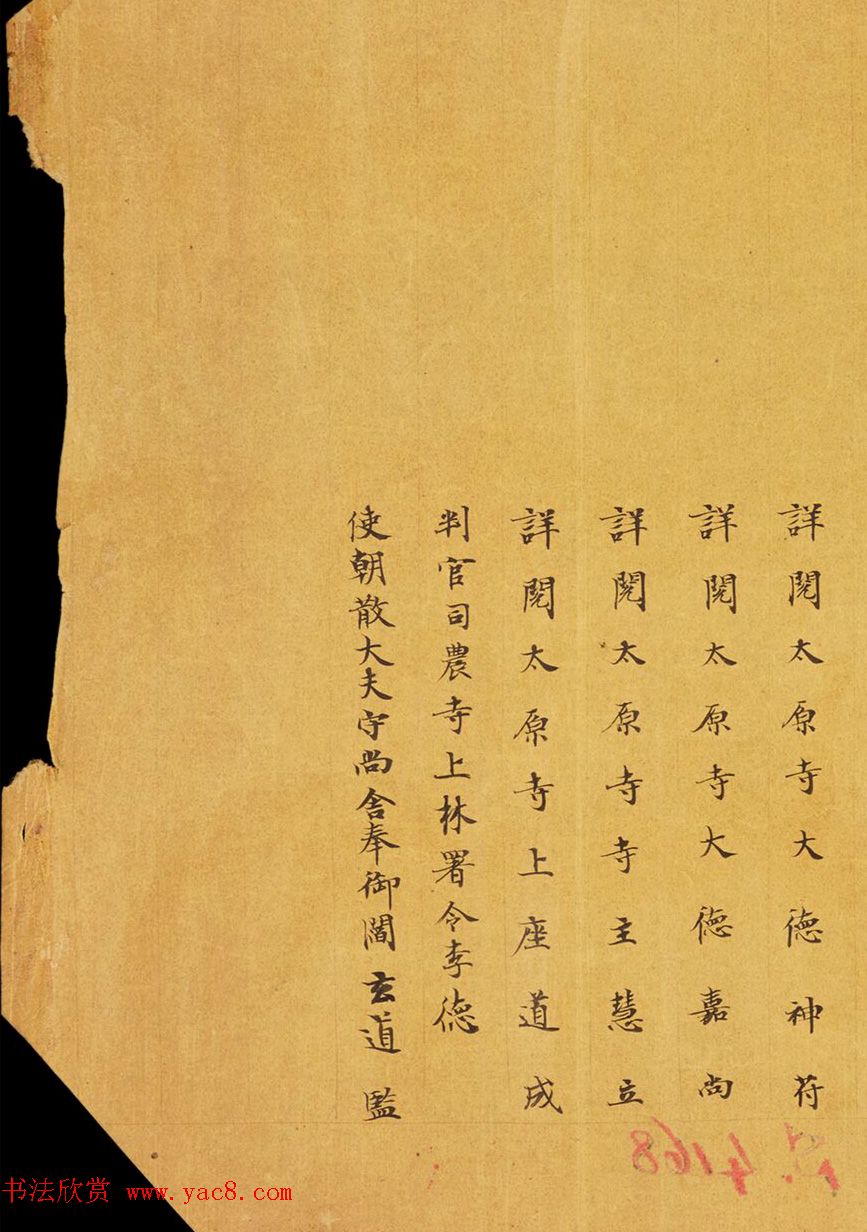 詳閱太原寺大德神苻
詳閱太原寺大德嘉尚
詳閱太原寺寺主慧立
詳閱太原寺上座道成
判官司農寺上林署令李德
使朝散大夫守尚舍奉御閻玄道監
4168
书法欣赏 www.yac8.com